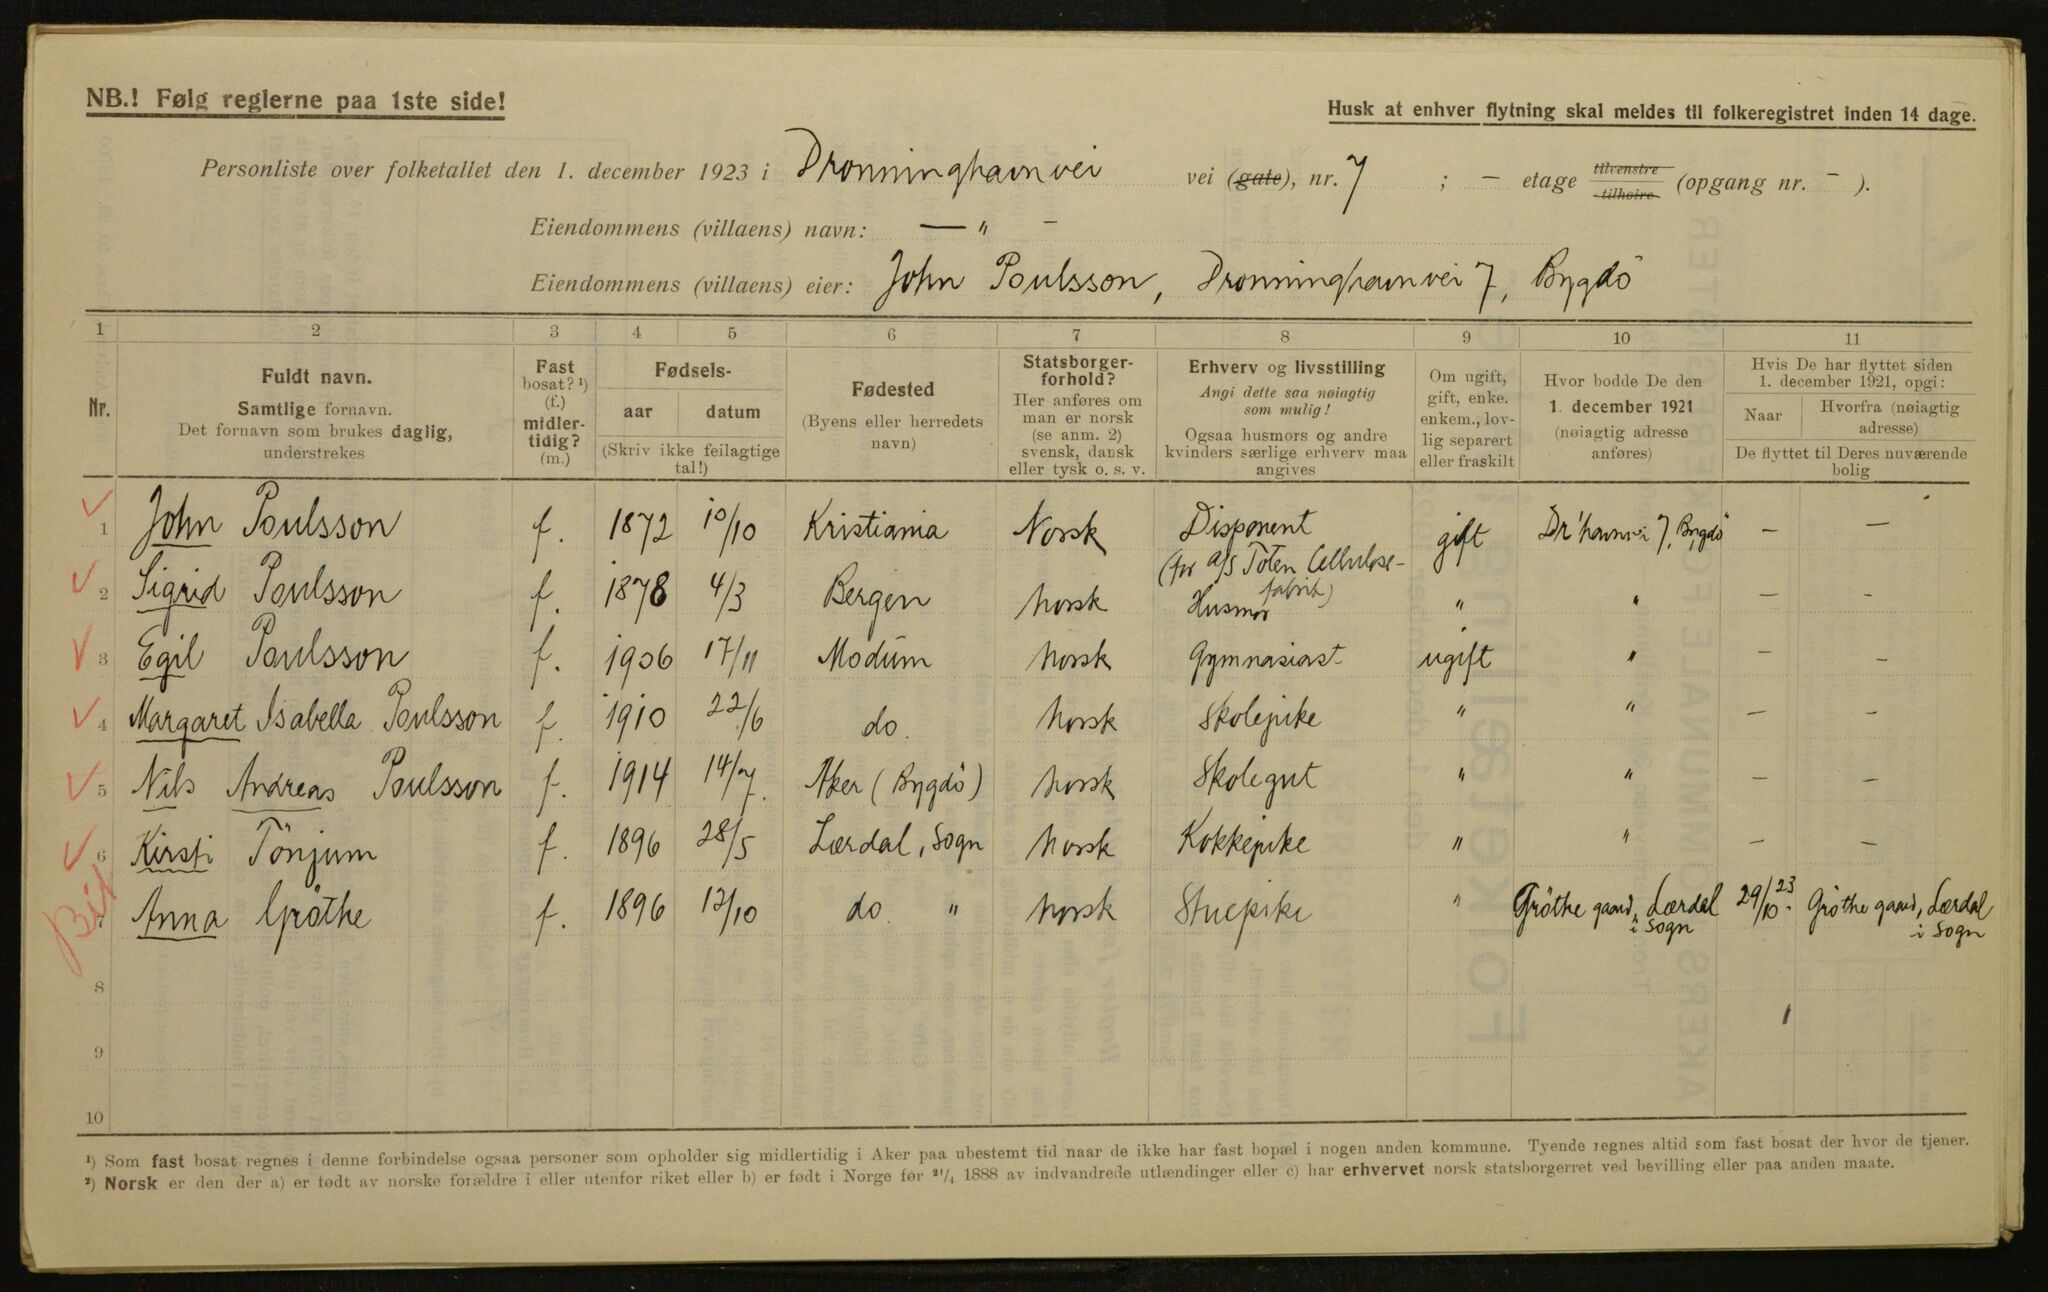 NB.! Følg reglerne paa 1ste side!
Husk at enhver flytning skal meldes til folkeregistret inden 14 dage.
Personliste over folketallet den 1. december 1923 i Dronninghavnvei vei (gate), nr. 7 ; – etage tilvenstre tilhøire (opgang nr. – ).
Eiendommens (villaens) navn: — " –
Eiendommens (villaens) eier: John Poulsson, Dronninghavnvei 7, Bygdö
1 2 3 4 5 6 7 8 9 10 11
Nr.
Fuldt navn.
Samtlige fornavn.
Det fornavn som brukes daglig,
understrekes
Fast
bosat? ¹)
(f.)
midler-
tidig?
(m.)
Fødsels-
aar datum
(Skriv ikke feilagtige
tal!)
Fødested
(Byens eller herredets
navn)
Statsborger-
forhold?
Her anføres om
man er norsk
(se anm. 2)
svensk, dansk
eller tysk o. s. v.
Erhverv og livsstilling
Angi dette saa nøiagtig
som mulig!
Ogsaa husmors og andre
kvinders særlige erhverv maa
angives
Om ugift,
gift, enke.
enkem., lov-
lig separert
eller fraskilt
Hvor bodde De den
1. december 1921
(nøiagtig adresse
anføres)
Hvis De har flyttet siden
1. december 1921, opgi:
Naar Hvorfra (nøiagtig
adresse)
De flyttet til Deres nuværende
bolig
1 John Poulsson f. 1872 10/10 Kristiania Norsk Disponent gift Dr'havnvei 7, Bygdö – —
(for A/S Toten Cellulose-
fabrik)
2 Sigrid Poulsson f. 1878 4/3 Bergen Norsk Husmor " " — –
3 Egil Poulsson f. 1906 17/11 Modum Norsk Gymnasiast ugift " – –
4 Margaret Isabella Poulsson f. 1910 22/6 do. Norsk Skolepike " " – –
5 Nils Andreas Poulsson f. 1914 14/7. Aker (Bygdö) Norsk Skolegut " " – –
6 Kirsti Tönjum f. 1896 28/5 Lærdal, Sogn Norsk Kokkepike " " – –
7 Anna Gröthe f. 1896 12/10 do. " Norsk Stuepike " Gröthe gaard, Lærdal 29/10 23. Gröthe gaard, Lærdal
i Sogn i Sogn
8
9
10
¹) Som fast bosat regnes i denne forbindelse ogsaa personer som opholder sig midlertidig i Aker paa ubestemt tid naar de ikke har fast bopæl i nogen anden kommune. Tyende regnes altid som fast bosat der hvor de tjener.
²) Norsk er den der a) er født av norske forældre i eller utenfor riket eller b) er født i Norge før ²¹/₄ 1888 av indvandrede utlændinger eller c) har erhvervet norsk statsborgerret ved bevilling eller paa anden maate.